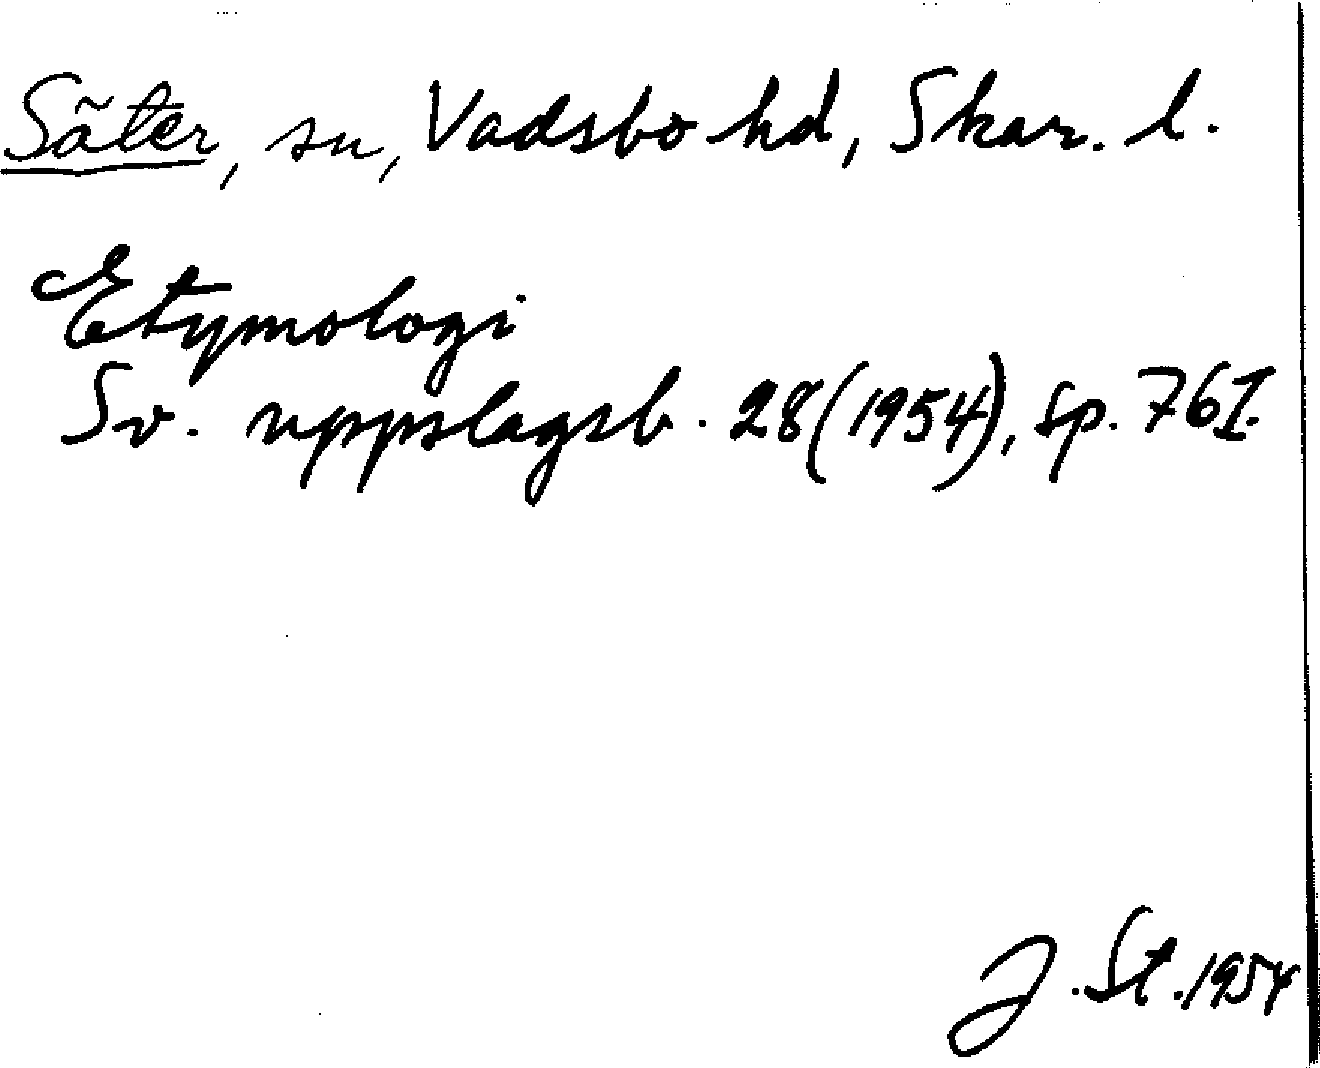 Säter, sn, Vadsbo hd, Skar. l.
Etymologi
Sv. uppslagsb. 28 (1954), sp. 761.
J. St. 1954